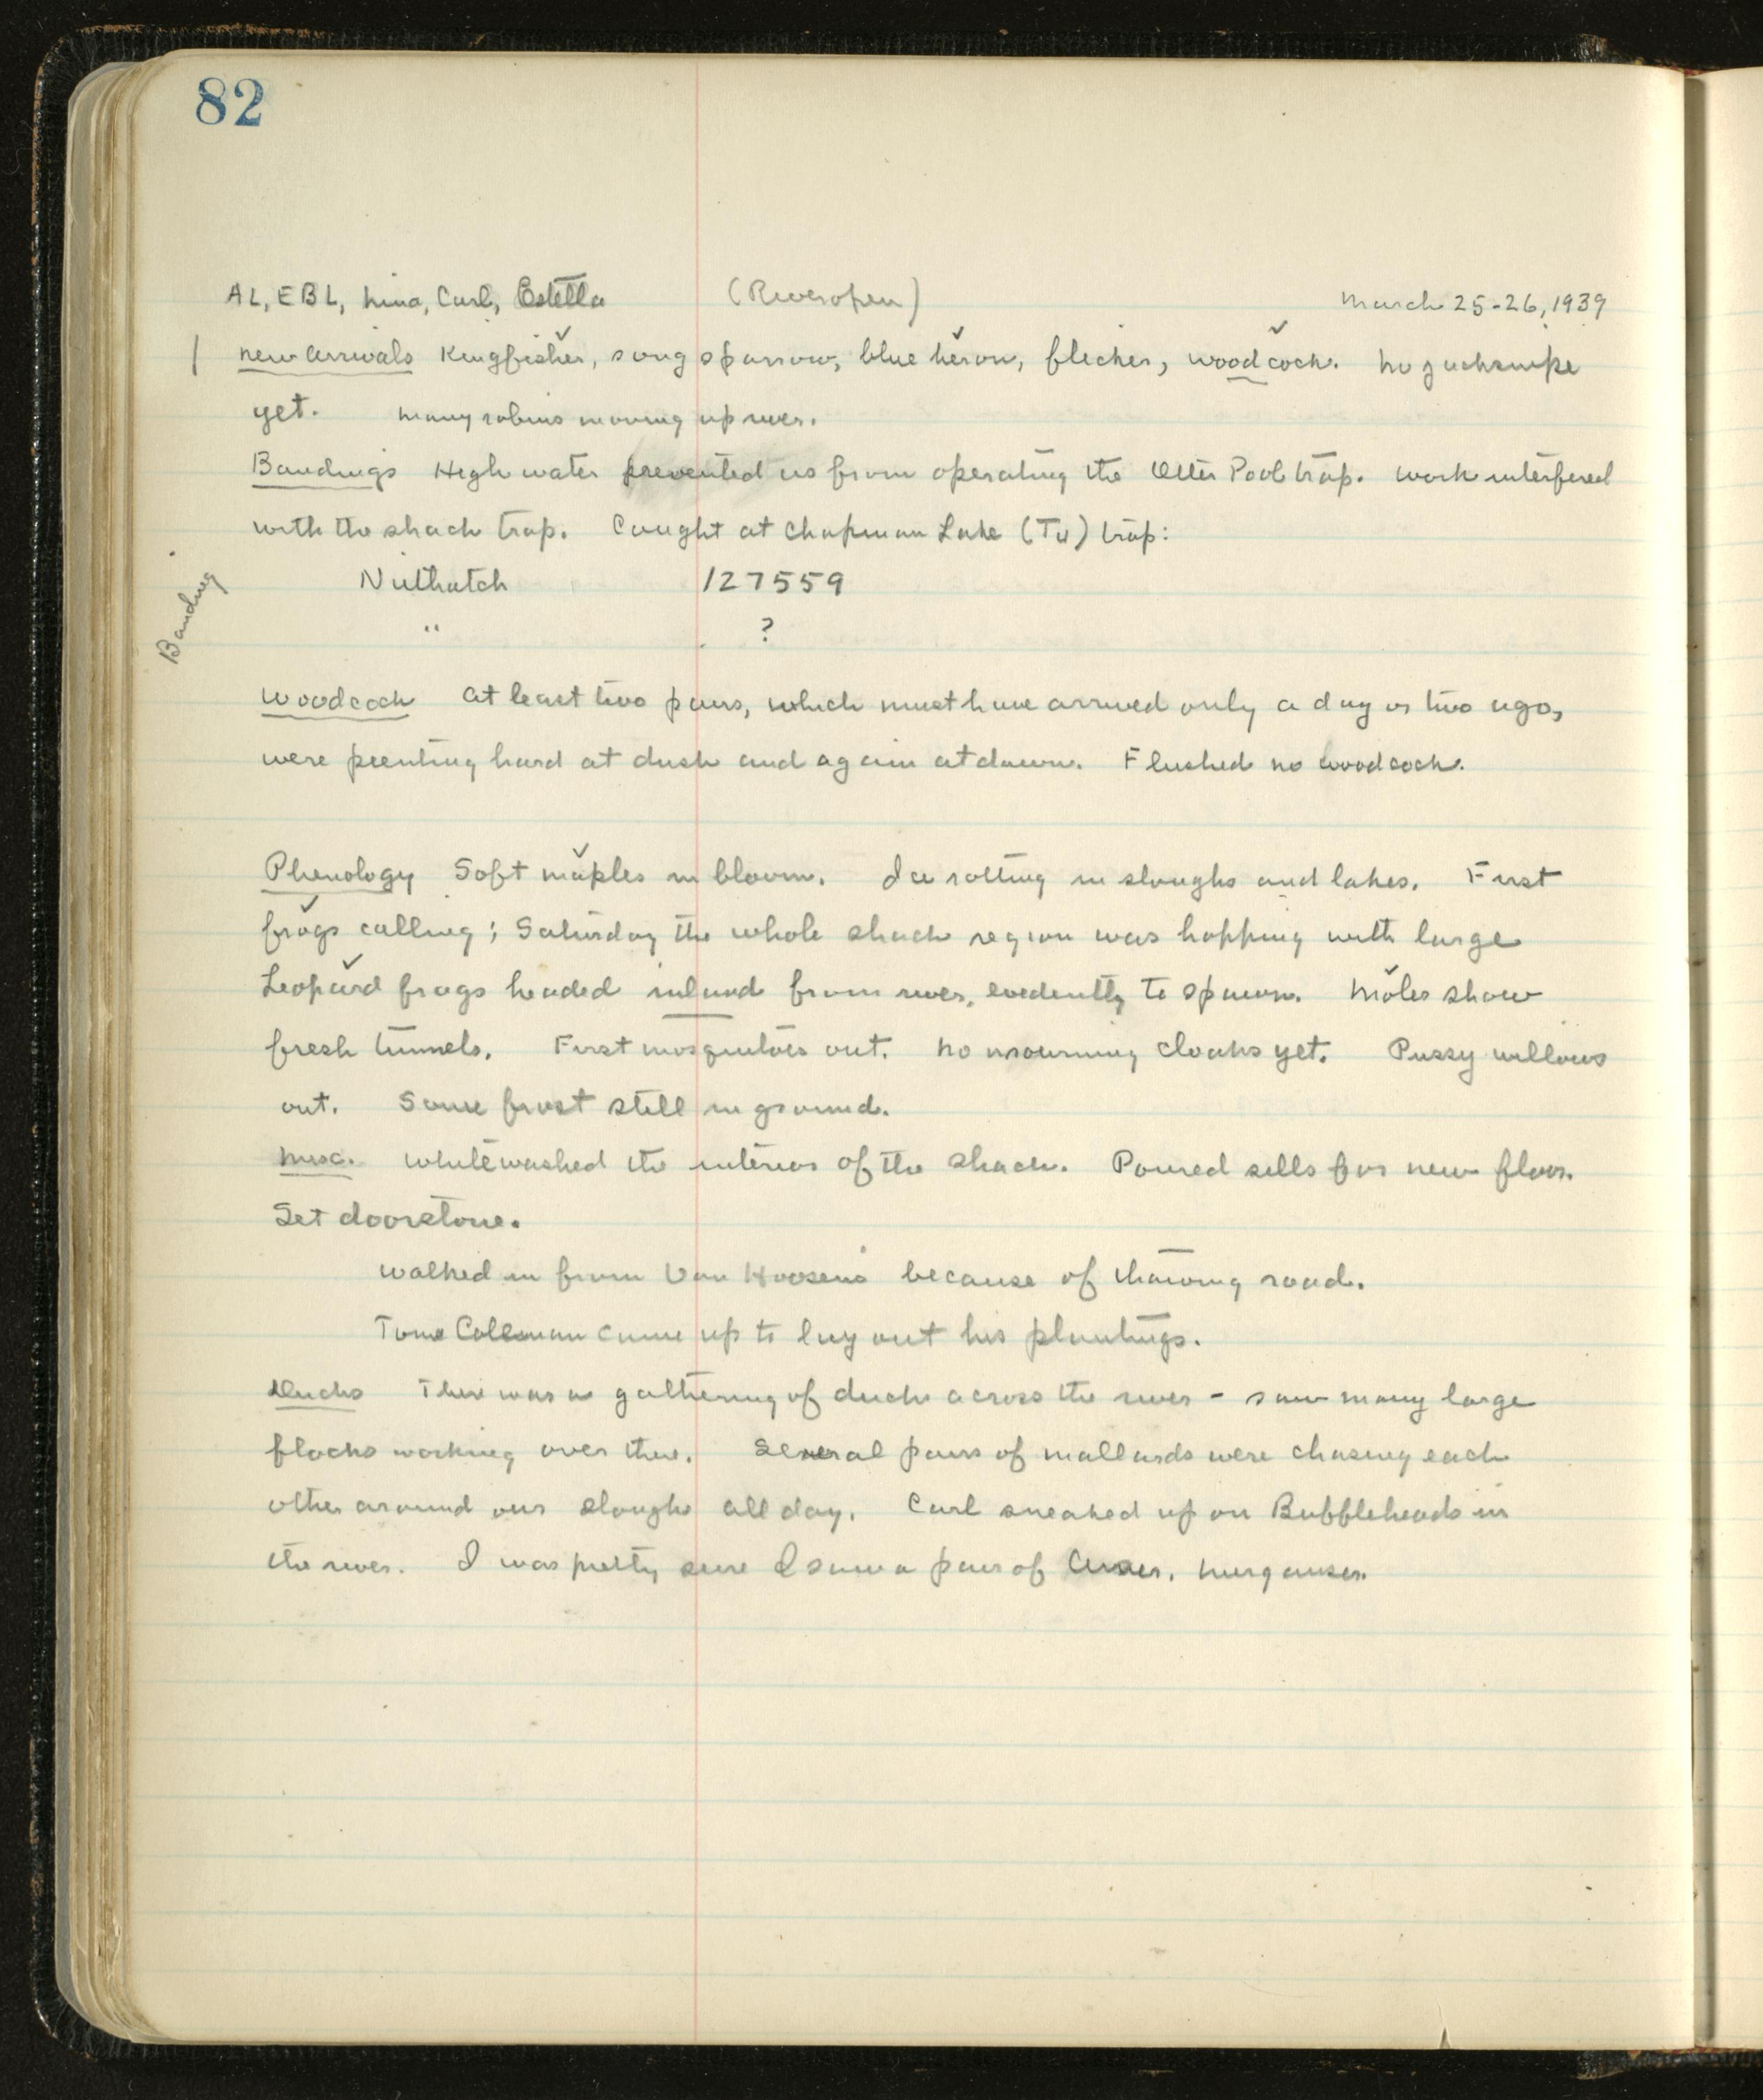 82
AL, EBL, Nina, Carl, Estella (River open) March 25-26, 1939
New arrivals Kingfisher, song sparrow, blue heron, flicker, woodcock. No jacksnipe
yet. Many robins moving up river.
Bandings High water prevented us from operating the Otter Pool trap. Work interfered
with the shack trap. Caught at Chapman Lake (T4) trap:
Banding
Nuthatch 127559
" ?
Woodcock At least two pairs, which must have arrived only a day or two ago,
were peenting hard at dusk and again at dawn. Flushed no woodcock.
Phenology Soft maples in bloom. Ice rotting in sloughs and lakes. First
frogs calling; Saturday the whole shack region was hopping with large
Leopard frogs headed inland from river, evidently to spawn. Moles show
fresh tunnels. First mosquitoes out. No mourning cloaks yet. Pussy willows
out. Some frost still in ground.
Misc. Whitewashed the interior of the shack. Poured sills for new floor.
Set doorstone.
Walked in from Van Hoosens because of thawing road.
Tom Coleman came up to lay out his plantings.
Ducks There was a gathering of ducks across the river - saw many large
flocks working over there. Several pairs of mallards were chasing each
other around our sloughs all day. Carl sneaked up on Buffleheads in
the river. I was pretty sure I saw a pair of Amer. Merganser.